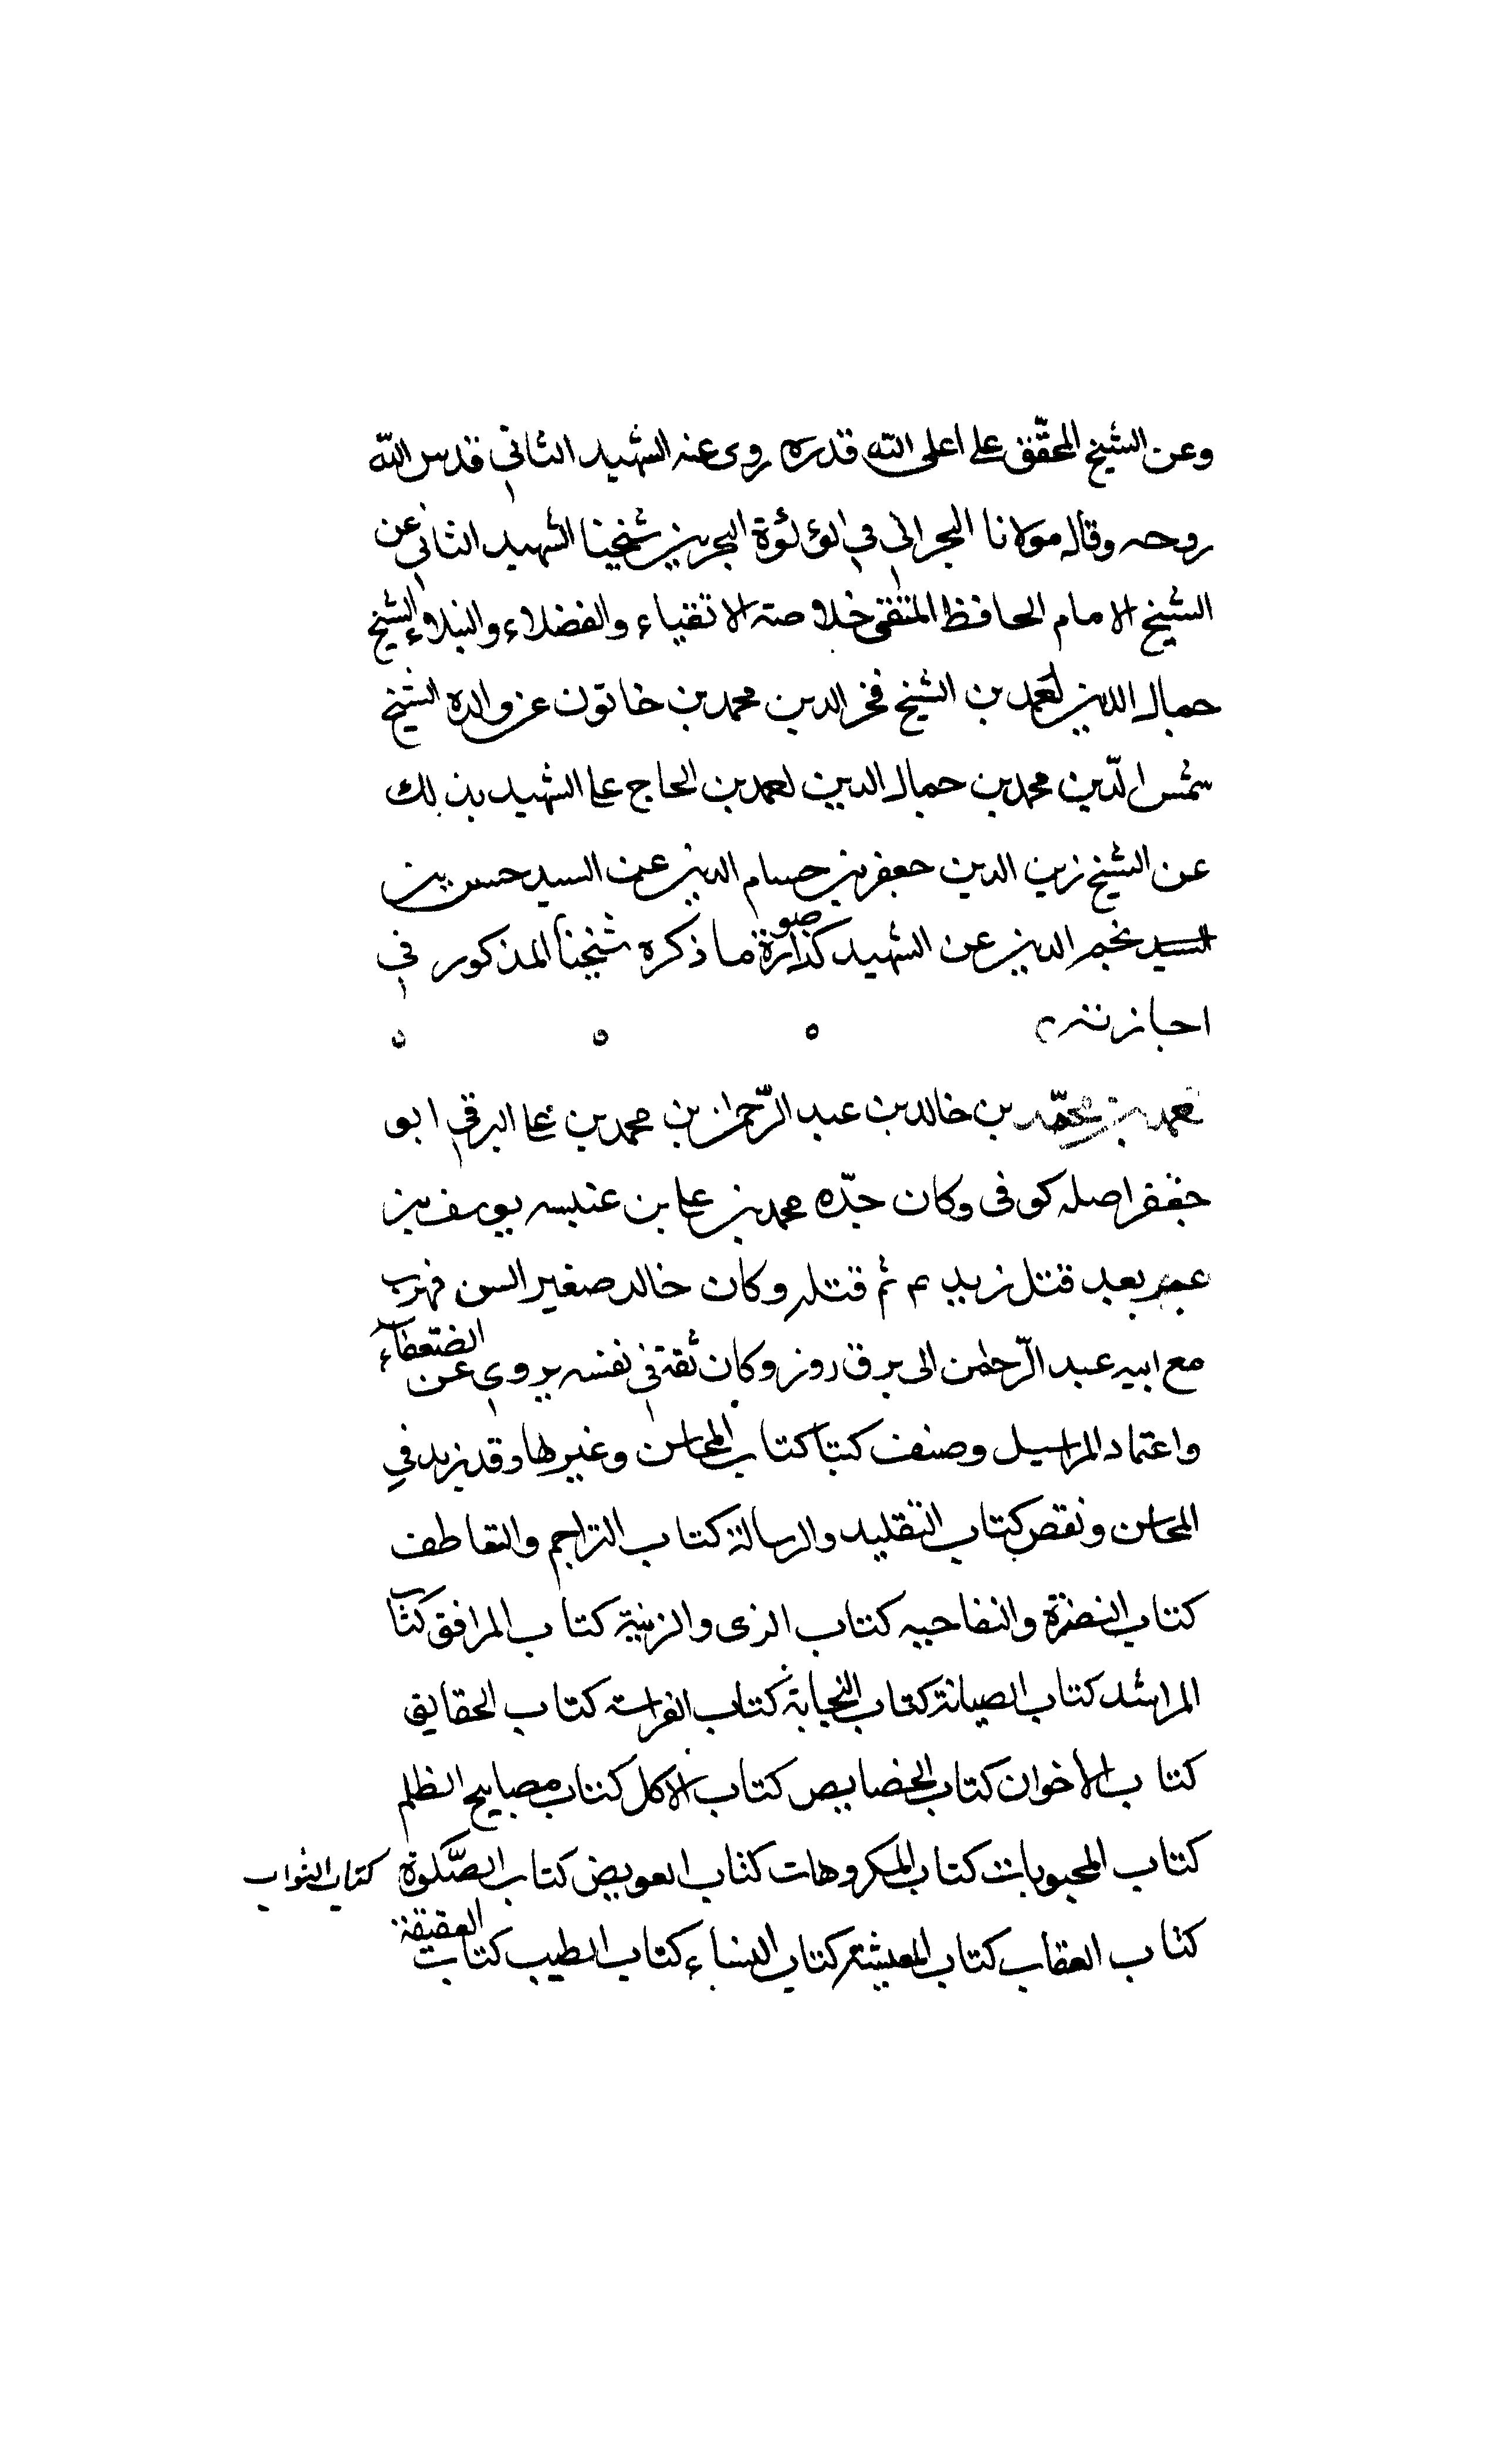 وعن الشيخ المحقّق علي اعلى الله قدره روى عنه الشهيد الثاني قدس الله
روحه وقال مولانا البحراني في لؤلؤة البحرين شيخنا الشهيد الثاني عن
الشيخ الامام الحافظ المتقي خلاصة الاتقياء والفضلاء والنبلاء الشيخ
جمال الدين احمد بن الشيخ فخر الدين محمد بن خاتون عن والده الشيخ
شمس الدّين محمد بن جمال الدين احمد بن الحاج علي الشهيد بذلك
عن الشيخ زين الدين جعفر بن حسام الدين عن السيد حسن بن
السيد نجم الدين عن الشهيد كذا صورة ما ذكره شيخنا المذكور في
اجازته
احمد بن محمّد بن خالد بن عبد الرّحمن بن محمد بن علي البرقي ابو
جعفر اصله كوفي وكان جدّه محمد بن علي بن عنبسه يوسف بن
عمر بعد قتل زيد ع ثم قتله وكان خالد صغير السن فهرب
مع ابيه عبد الرّحمن الى برق روز وكان ثقة في نفسه يروى عن الضعفاء
واعتماد المراسيل وصنف كتبا كتاب المحاسن وغيرها وقد زيد في
المحاسن ونقص كتاب التقليد والرسالة كتاب التراجم والتعاطف
كتاب النضرة والنفاحيه كتاب الزى والزينة كتاب المرافق كتاب
المراشد كتاب الصيانة كتاب النجابة كتاب الفراسة كتاب الحقايق
كتاب الاخوان كتاب الخصايص كتاب الاكل كتاب مصابيح الظلم
كتاب المحبوبات كتاب المكروهات كتاب العويض كتاب الصّلوة كتاب الثواب
كتاب العقاب كتاب المعيشة كتاب النساء كتاب الطيب كتاب العقيقة